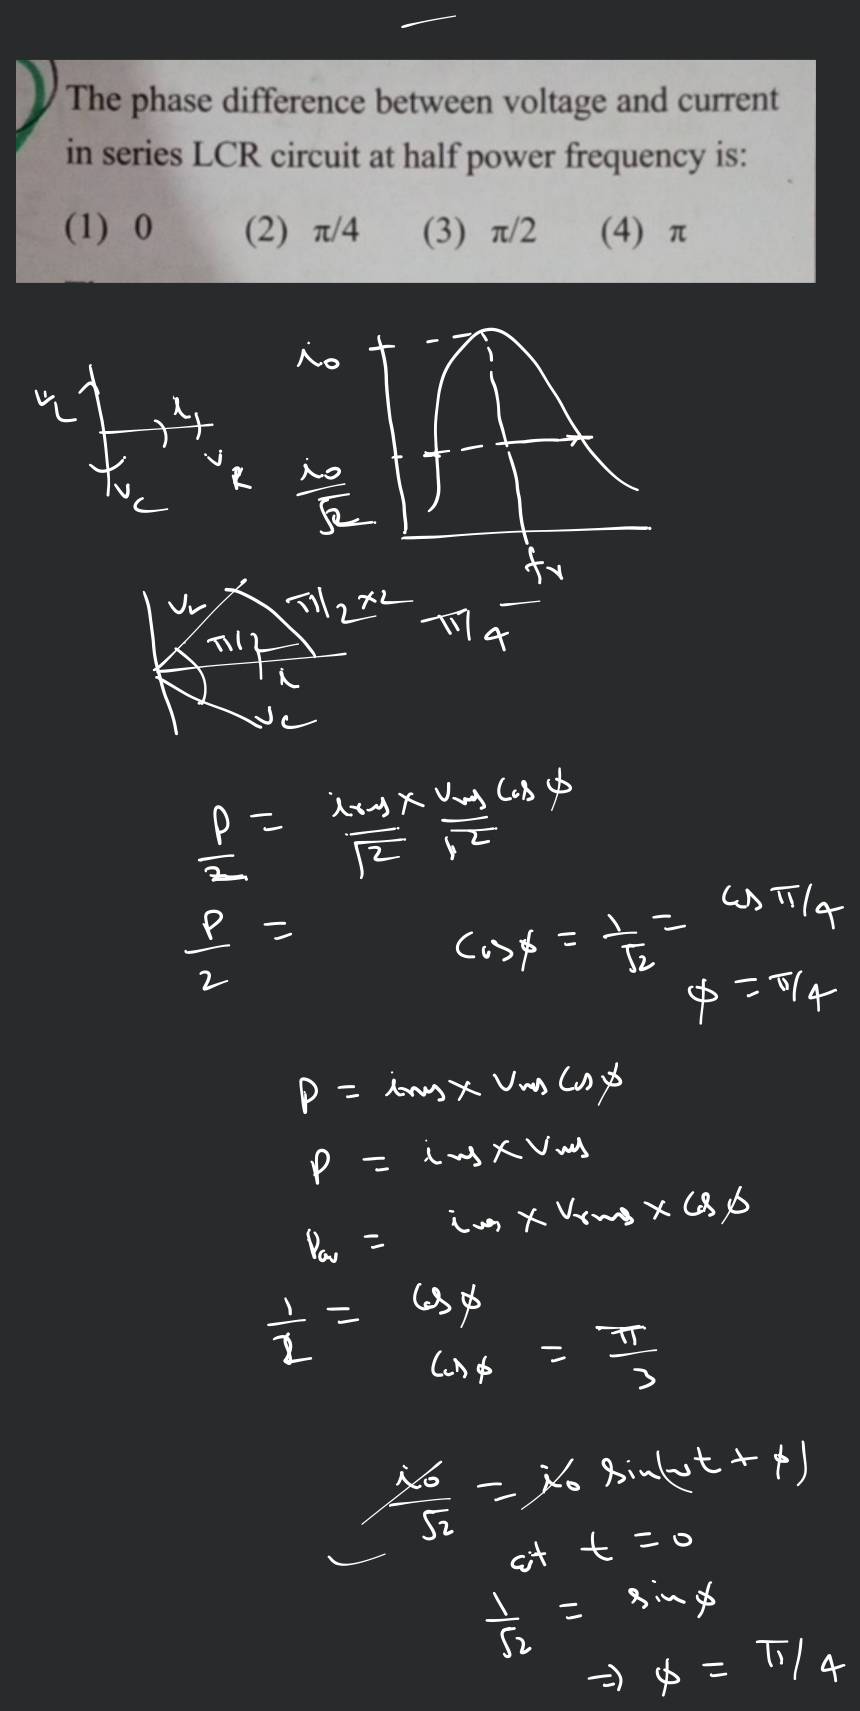 The phase difference between voltage and current
in series LCR circuit at half power frequency is:
(1) 0 (2) π/4 (3) π/2 (4) π
V_L
i
V_R
V_C
i₀
i₀/√2
f_r
V_L
π/2
i
V_C
π/2×2
π/4
P/2 = i_rms/√2 × V_rms/√2 Cos ϕ
P/2 =
Cosϕ = 1/√2 = cos π/4
ϕ = π/4
P = i_rms × V_rms Cos ϕ
P = i_rms × V_rms
P_av = i_rms × V_rms × Cos ϕ
1/2 = Cos ϕ
Cos ϕ = π/3
i₀/√2 = i₀ sin(ωt + ϕ)
at t = 0
1/√2 = sin ϕ
⇒ ϕ = π/4